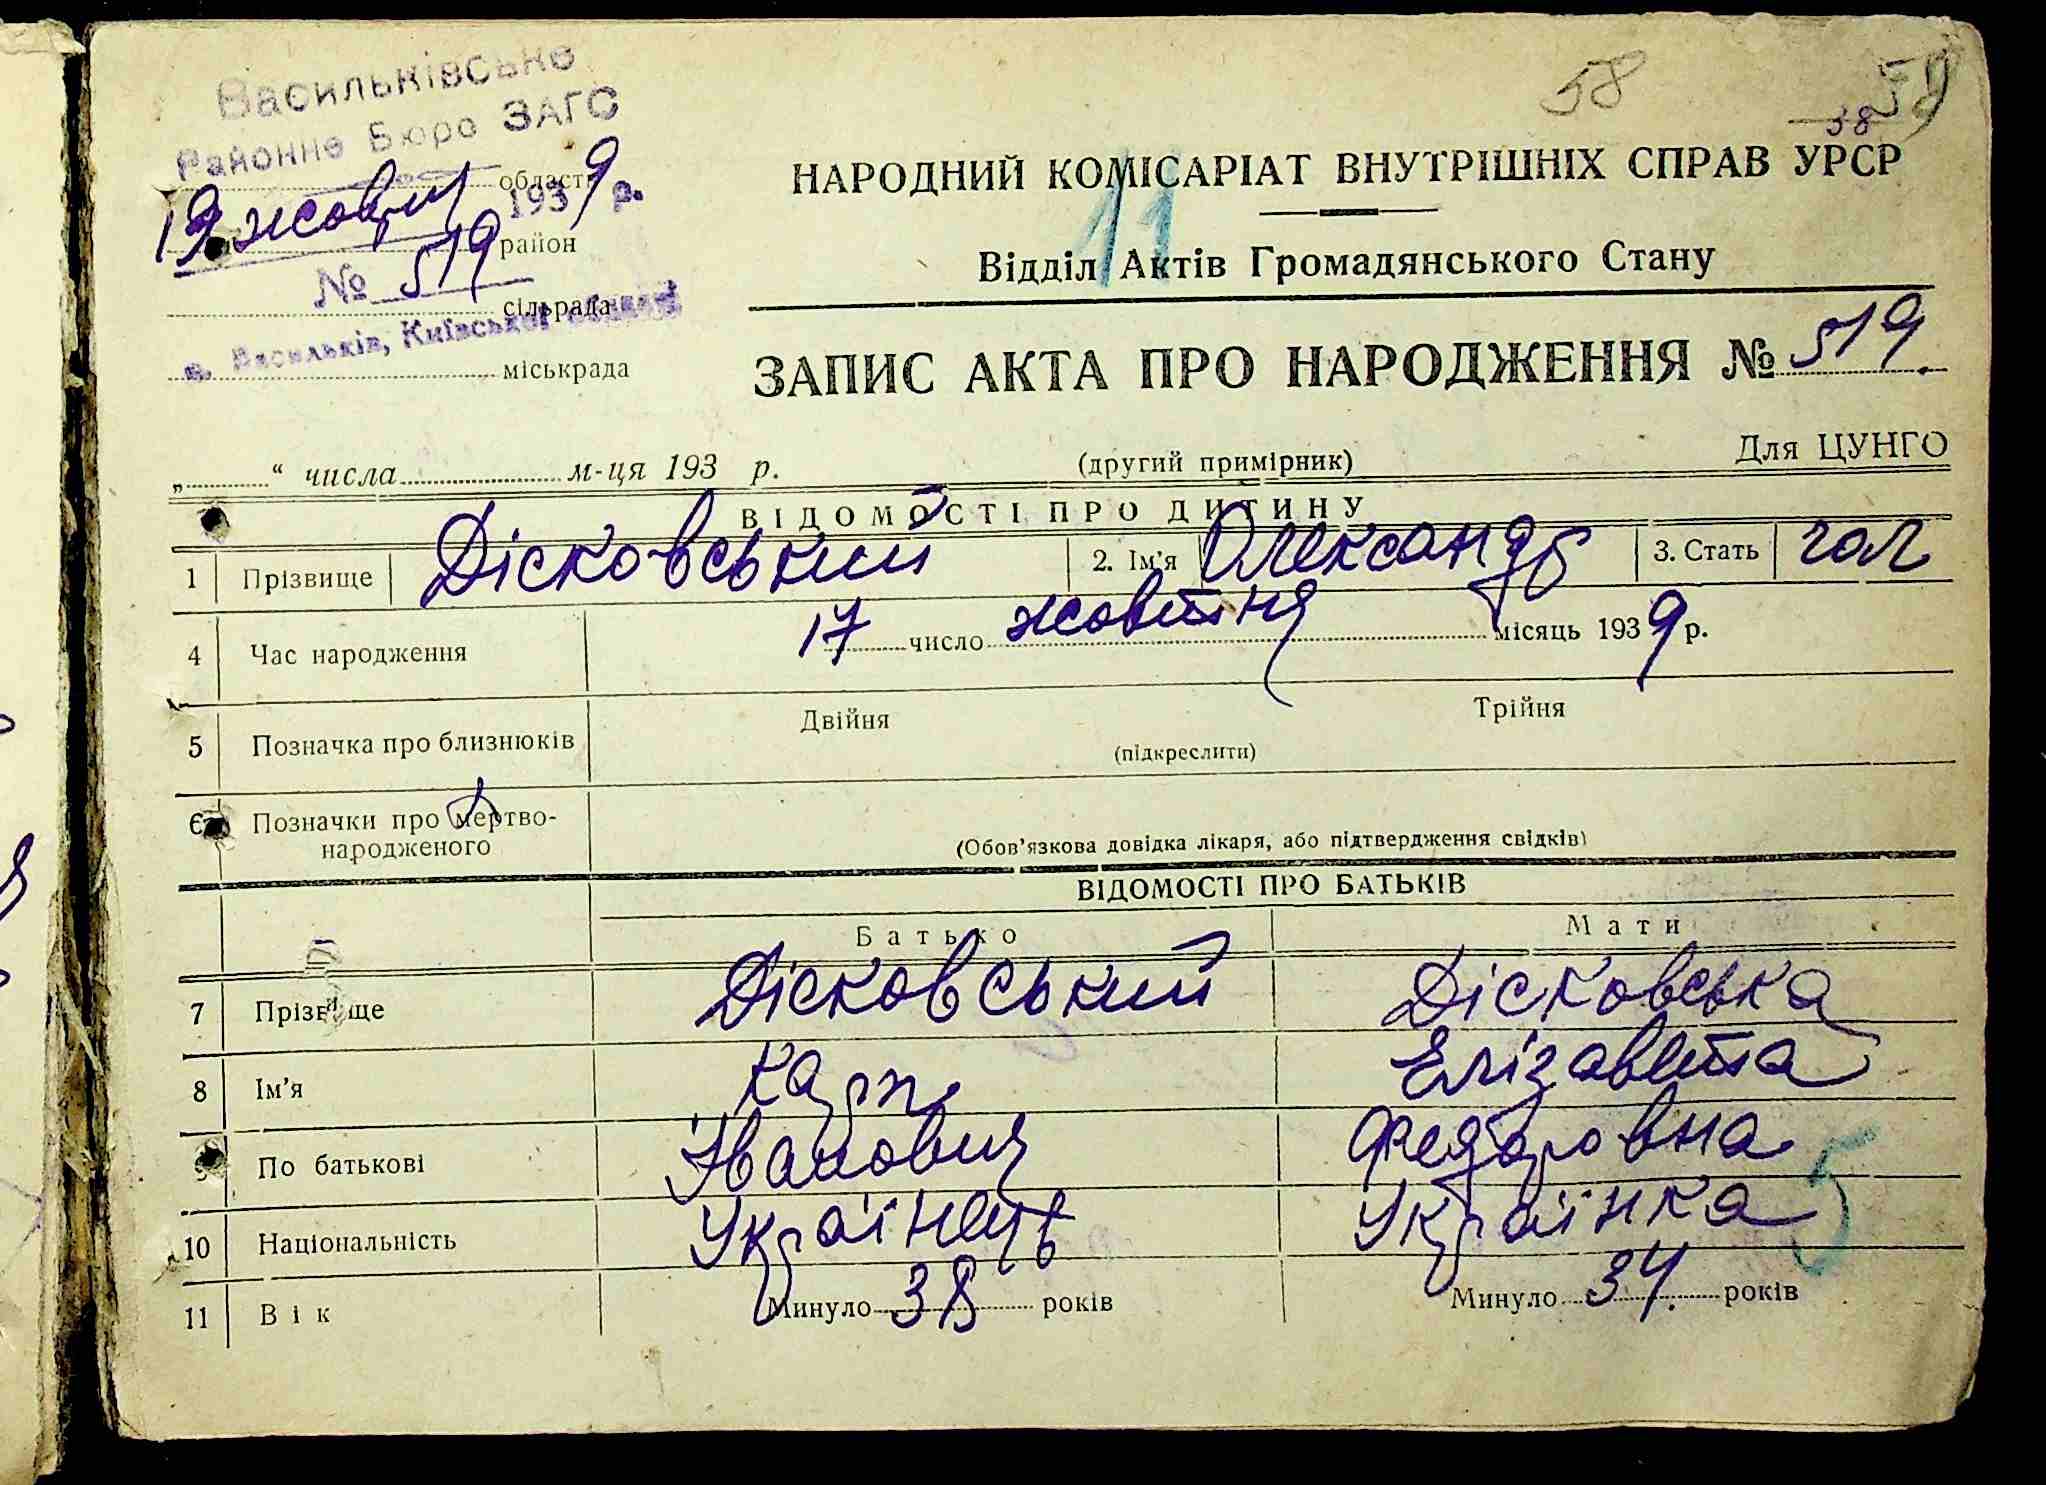 58
59
38
Васильківське
Районне Бюро ЗАГС
область
19 жовтня 1939 р.
район
№ 519
сільрада
м. Васильків, Київської області
міськрада
НАРОДНИЙ КОМІСАРІАТ ВНУТРІШНІХ СПРАВ УРСР
11
Відділ Актів Громадянського Стану
ЗАПИС АКТА ПРО НАРОДЖЕННЯ № 519.
„ “ числа м-ця 193 р.
(другий примірник)
Для ЦУНГО
ВІДОМОСТІ ПРО ДИТИНУ
1 Прізвище Дісковський 2. Ім’я Олександр 3. Стать чол
4 Час народження 17 число жовтня місяць 1939 р.
5 Позначка про близнюків Двійня Трійня
(підкреслити)
6 Позначки про мертво-
народженого
(Обов’язкова довідка лікаря, або підтвердження свідків)
ВІДОМОСТІ ПРО БАТЬКІВ
Батько Мати
7 Прізвище Дісковський Дісковська
8 Ім’я Карп Елізавета
9 По батькові Іванович Федоровна
10 Національність Українець Українка 5
11 Вік Минуло 38 років Минуло 34 років